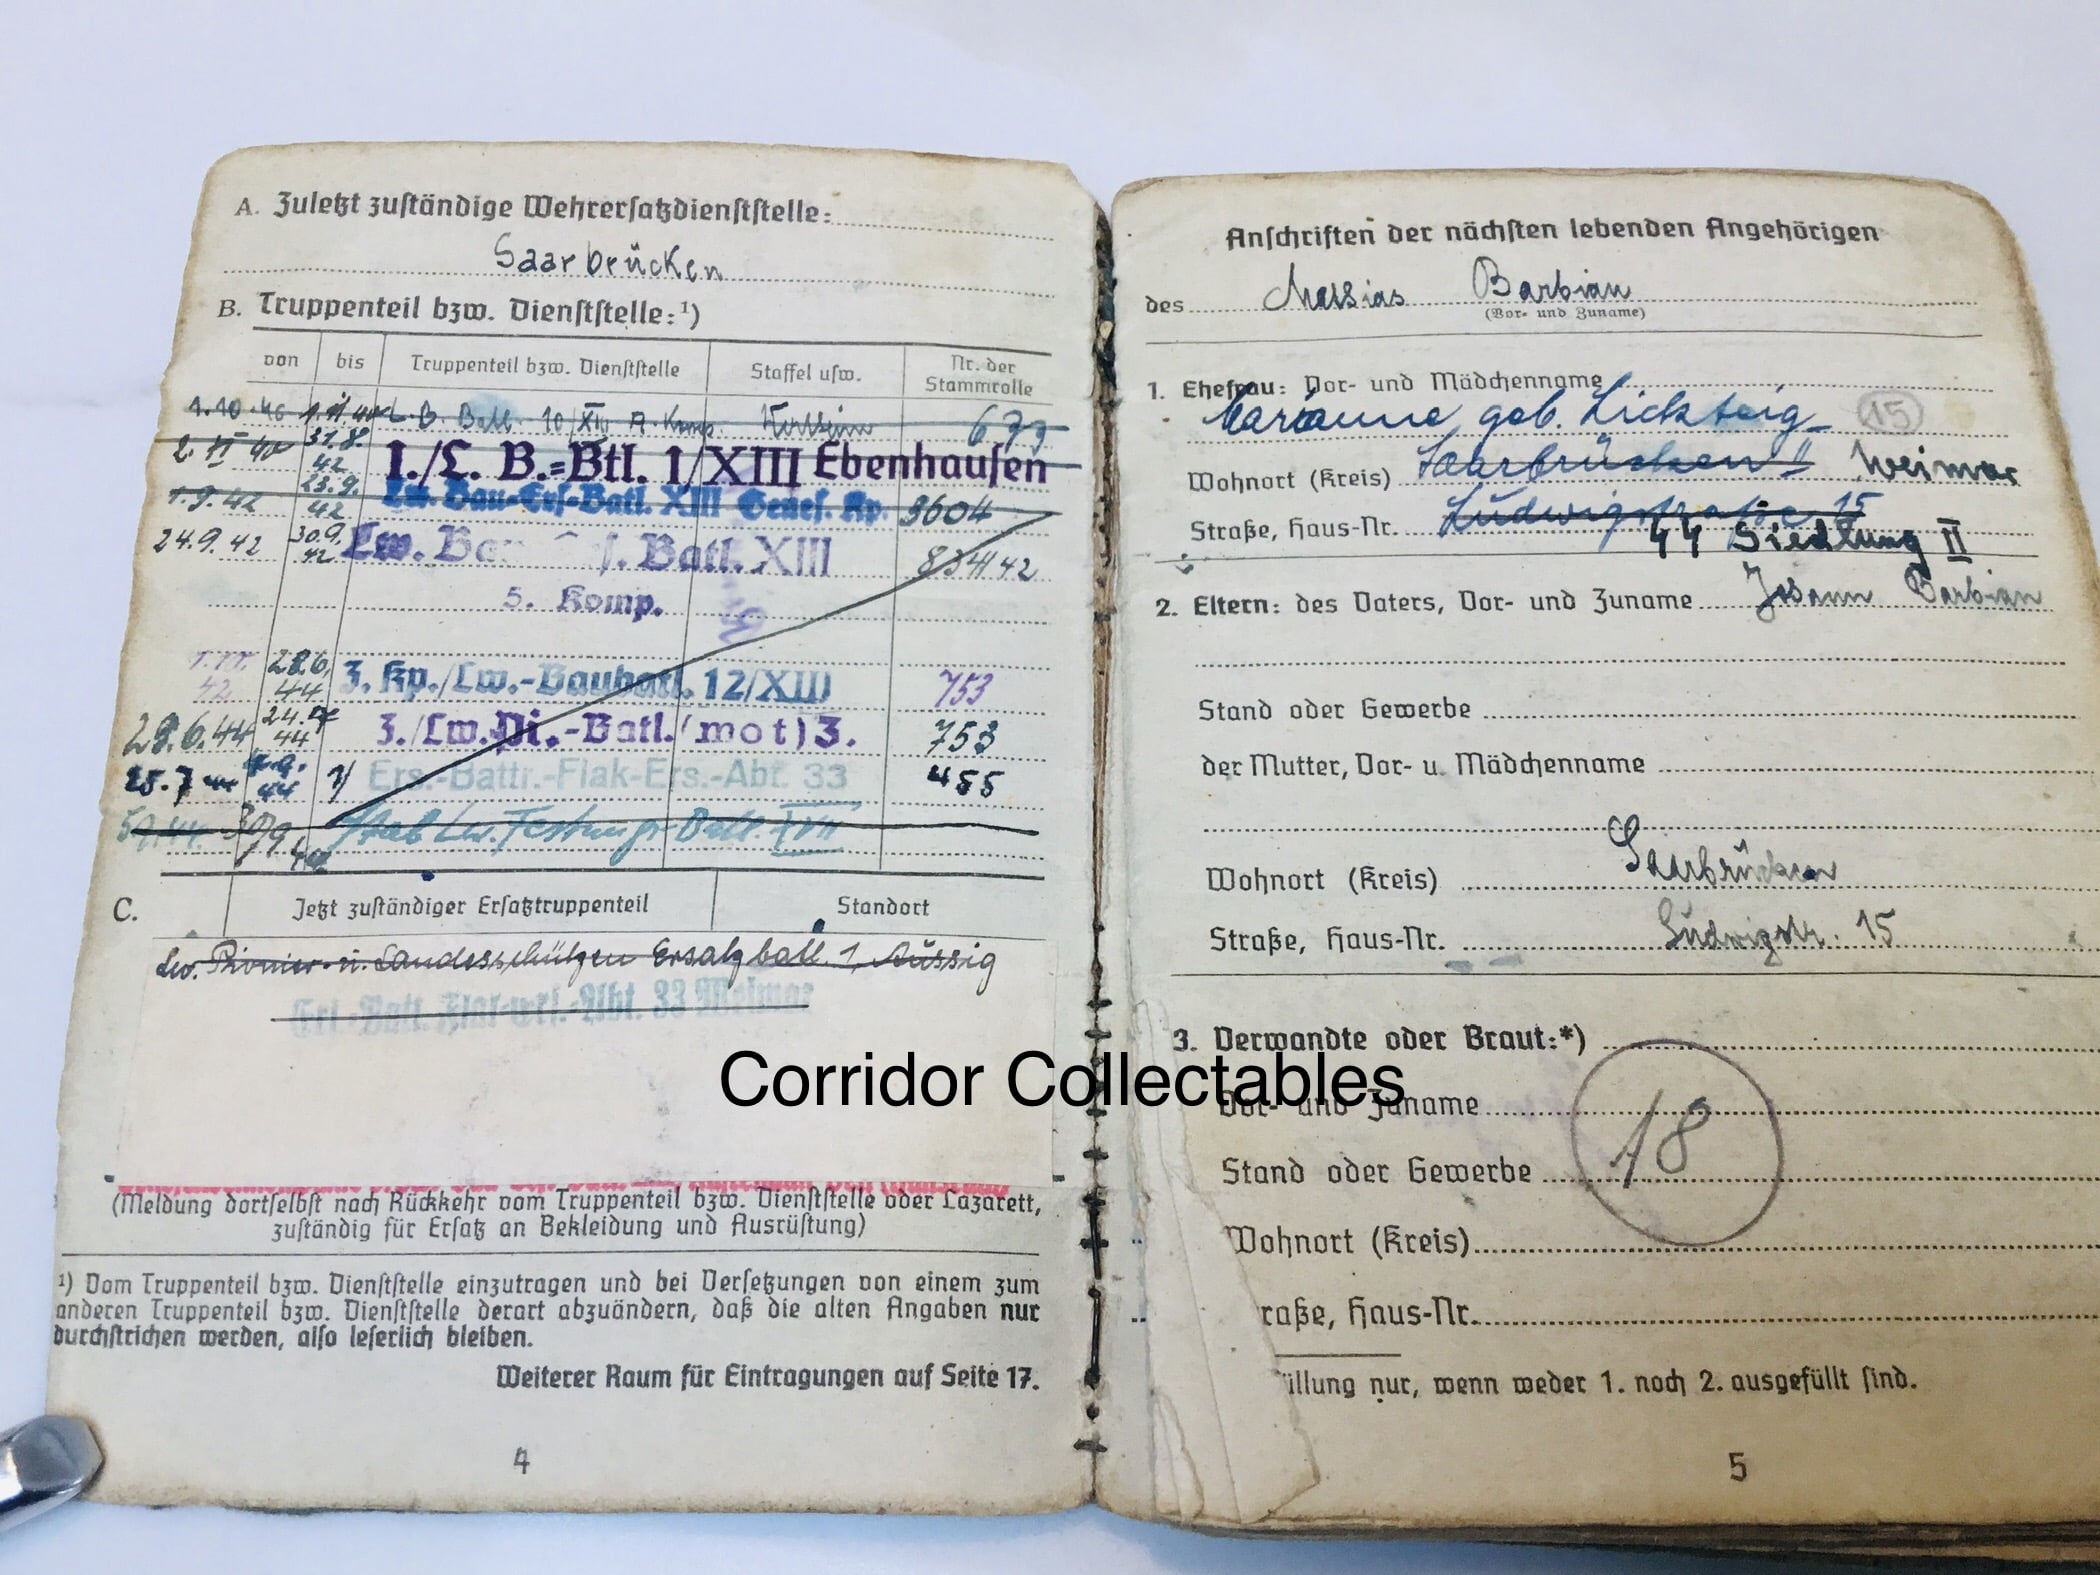 A. Zuletzt zuständige Wehrersatzdienststelle:
Saarbrücken
B. Truppenteil bzw. Dienststelle:¹)
von bis Truppenteil bzw. Dienststelle Staffel usw. Nr. der Stammrolle
1.10.40 L. B. Batl. 10/XIV A. Komp. 673
2. 11 40 31.8. 42 1./L. B.=Btl. 1/XIII Ebenhausen
1.9.42 23.9. 42 Lw. Bau-Ers-Batl. XIII Genes. Kp. 3604
24.9.42 30.9. 42 Lw. Batl. XIII 834/42
5. Komp.
42 28.6. 44 3. Kp./Lw.-Baubatl. 12/XIII 753
29.6.44 24. 44 3./Lw.Pi.-Batl.(mot) 3. 753
25.7 44 1/ Ers.-Battr.-Flak-Ers.-Abt. 33 455
5.9.44. Stab Lw. Festungs Batl. XVII
C. Jetzt zuständiger Ersatztruppenteil Standort
Lw. Pionier- u. Landesschützen Ersatzbatl. 1, Aussig
33 Weimar
(Meldung dortselbst nach Rückkehr vom Truppenteil bzw. Dienststelle oder Lazarett,
zuständig für Ersatz an Bekleidung und Ausrüstung)
¹) Vom Truppenteil bzw. Dienststelle einzutragen und bei Versetzungen von einem zum
anderen Truppenteil bzw. Dienststelle derart abzuändern, daß die alten Angaben nur
durchstrichen werden, also leserlich bleiben.
Weiterer Raum für Eintragungen auf Seite 17.
4
Anschriften der nächsten lebenden Angehörigen
des Barbian
(Vor- und Zuname)
1. Ehefrau: Vor- und Mädchenname
Marianne, geb. Lickteig 15
Wohnort (Kreis) Saarbrücken II Weimar
Straße, Haus-Nr. Ludwigstraße 15
44 Siedlung II
2. Eltern: des Vaters, Vor- und Zuname Johann Barbian
Stand oder Gewerbe
der Mutter, Vor- u. Mädchenname
Wohnort (Kreis) Saarbrücken
Straße, Haus-Nr. Ludwigstr. 15
3. Verwandte oder Braut:*)
Vor- und Zuname
Stand oder Gewerbe
Wohnort (Kreis)
raße, Haus-Nr.
18
üllung nur, wenn weder 1. noch 2. ausgefüllt sind.
5
Corridor Collectables